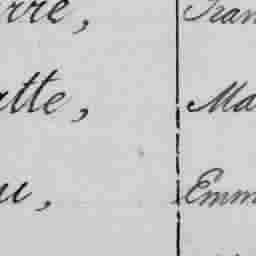 rre, Fran
tte, Ma
u, Emm